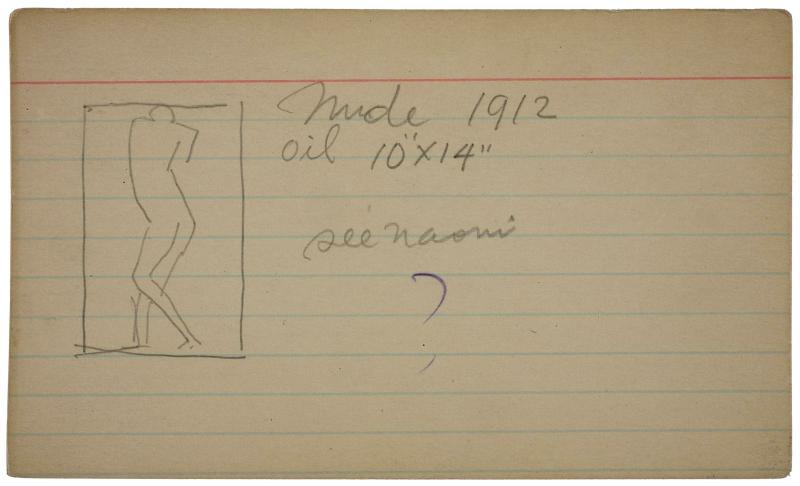 Nude 1912
oil 10"x14"
see naomi
?